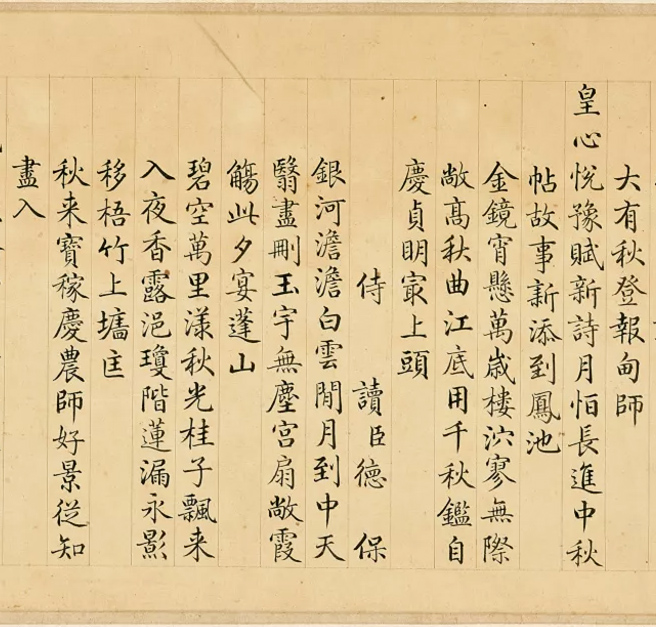 大有秋登報甸師
皇心悅豫賦新詩月怕長進中秋
帖故事新添到鳳池
金鏡宵懸萬嵗樓泬寥無際
敞髙秋曲江底用千秋鑑自
慶貞眀冣上頭
侍讀臣德保
銀河澹澹白雲閒月到中天
翳盡刪玉宇無塵宮扇敞霞
觴此夕宴蓬山
碧空萬里漾秋光桂子飄来
入夜香露浥瓊階蓮漏永影
移梧竹上墻匡
秋来寶稼慶農師好景從知
盡入